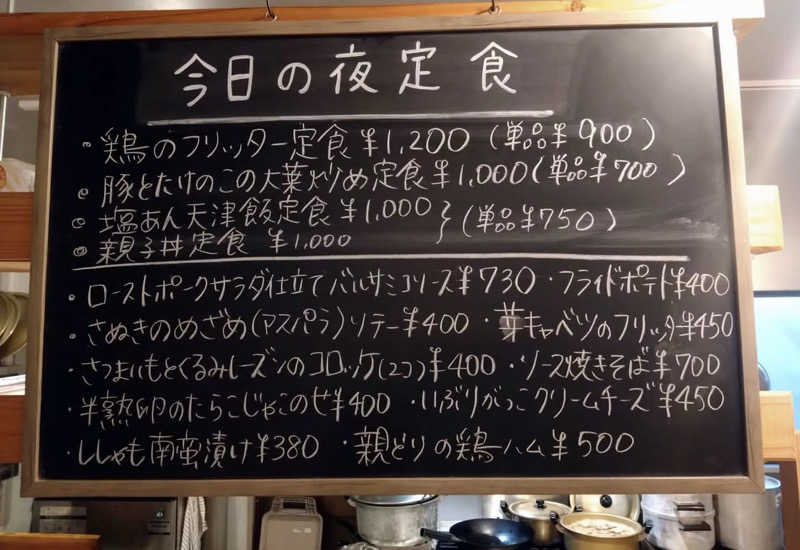 今日の夜定食
・鶏のフリッター定食 ¥1,200 (単品¥900)
・豚とたけのこの大葉炒め定食¥1,000(単品¥700)
・塩あん天津飯定食 ¥1,000 } (単品¥750)
・親子丼定食 ¥1,000
・ローストポークサラダ仕立てバルサミコソース¥730 ・フライドポテト¥400
・さぬきのめざめ(アスパラ)ソテー¥400 ・芽キャベツのフリッター¥450
・さつまいもとくるみレーズンのコロッケ(2コ)¥400 ・ソース焼きそば¥700
・半熟卵のたらこじゃこのせ¥400 ・いぶりがっこクリームチーズ¥450
・ししゃも南蛮漬け¥380 ・親どりの鶏ハム¥500